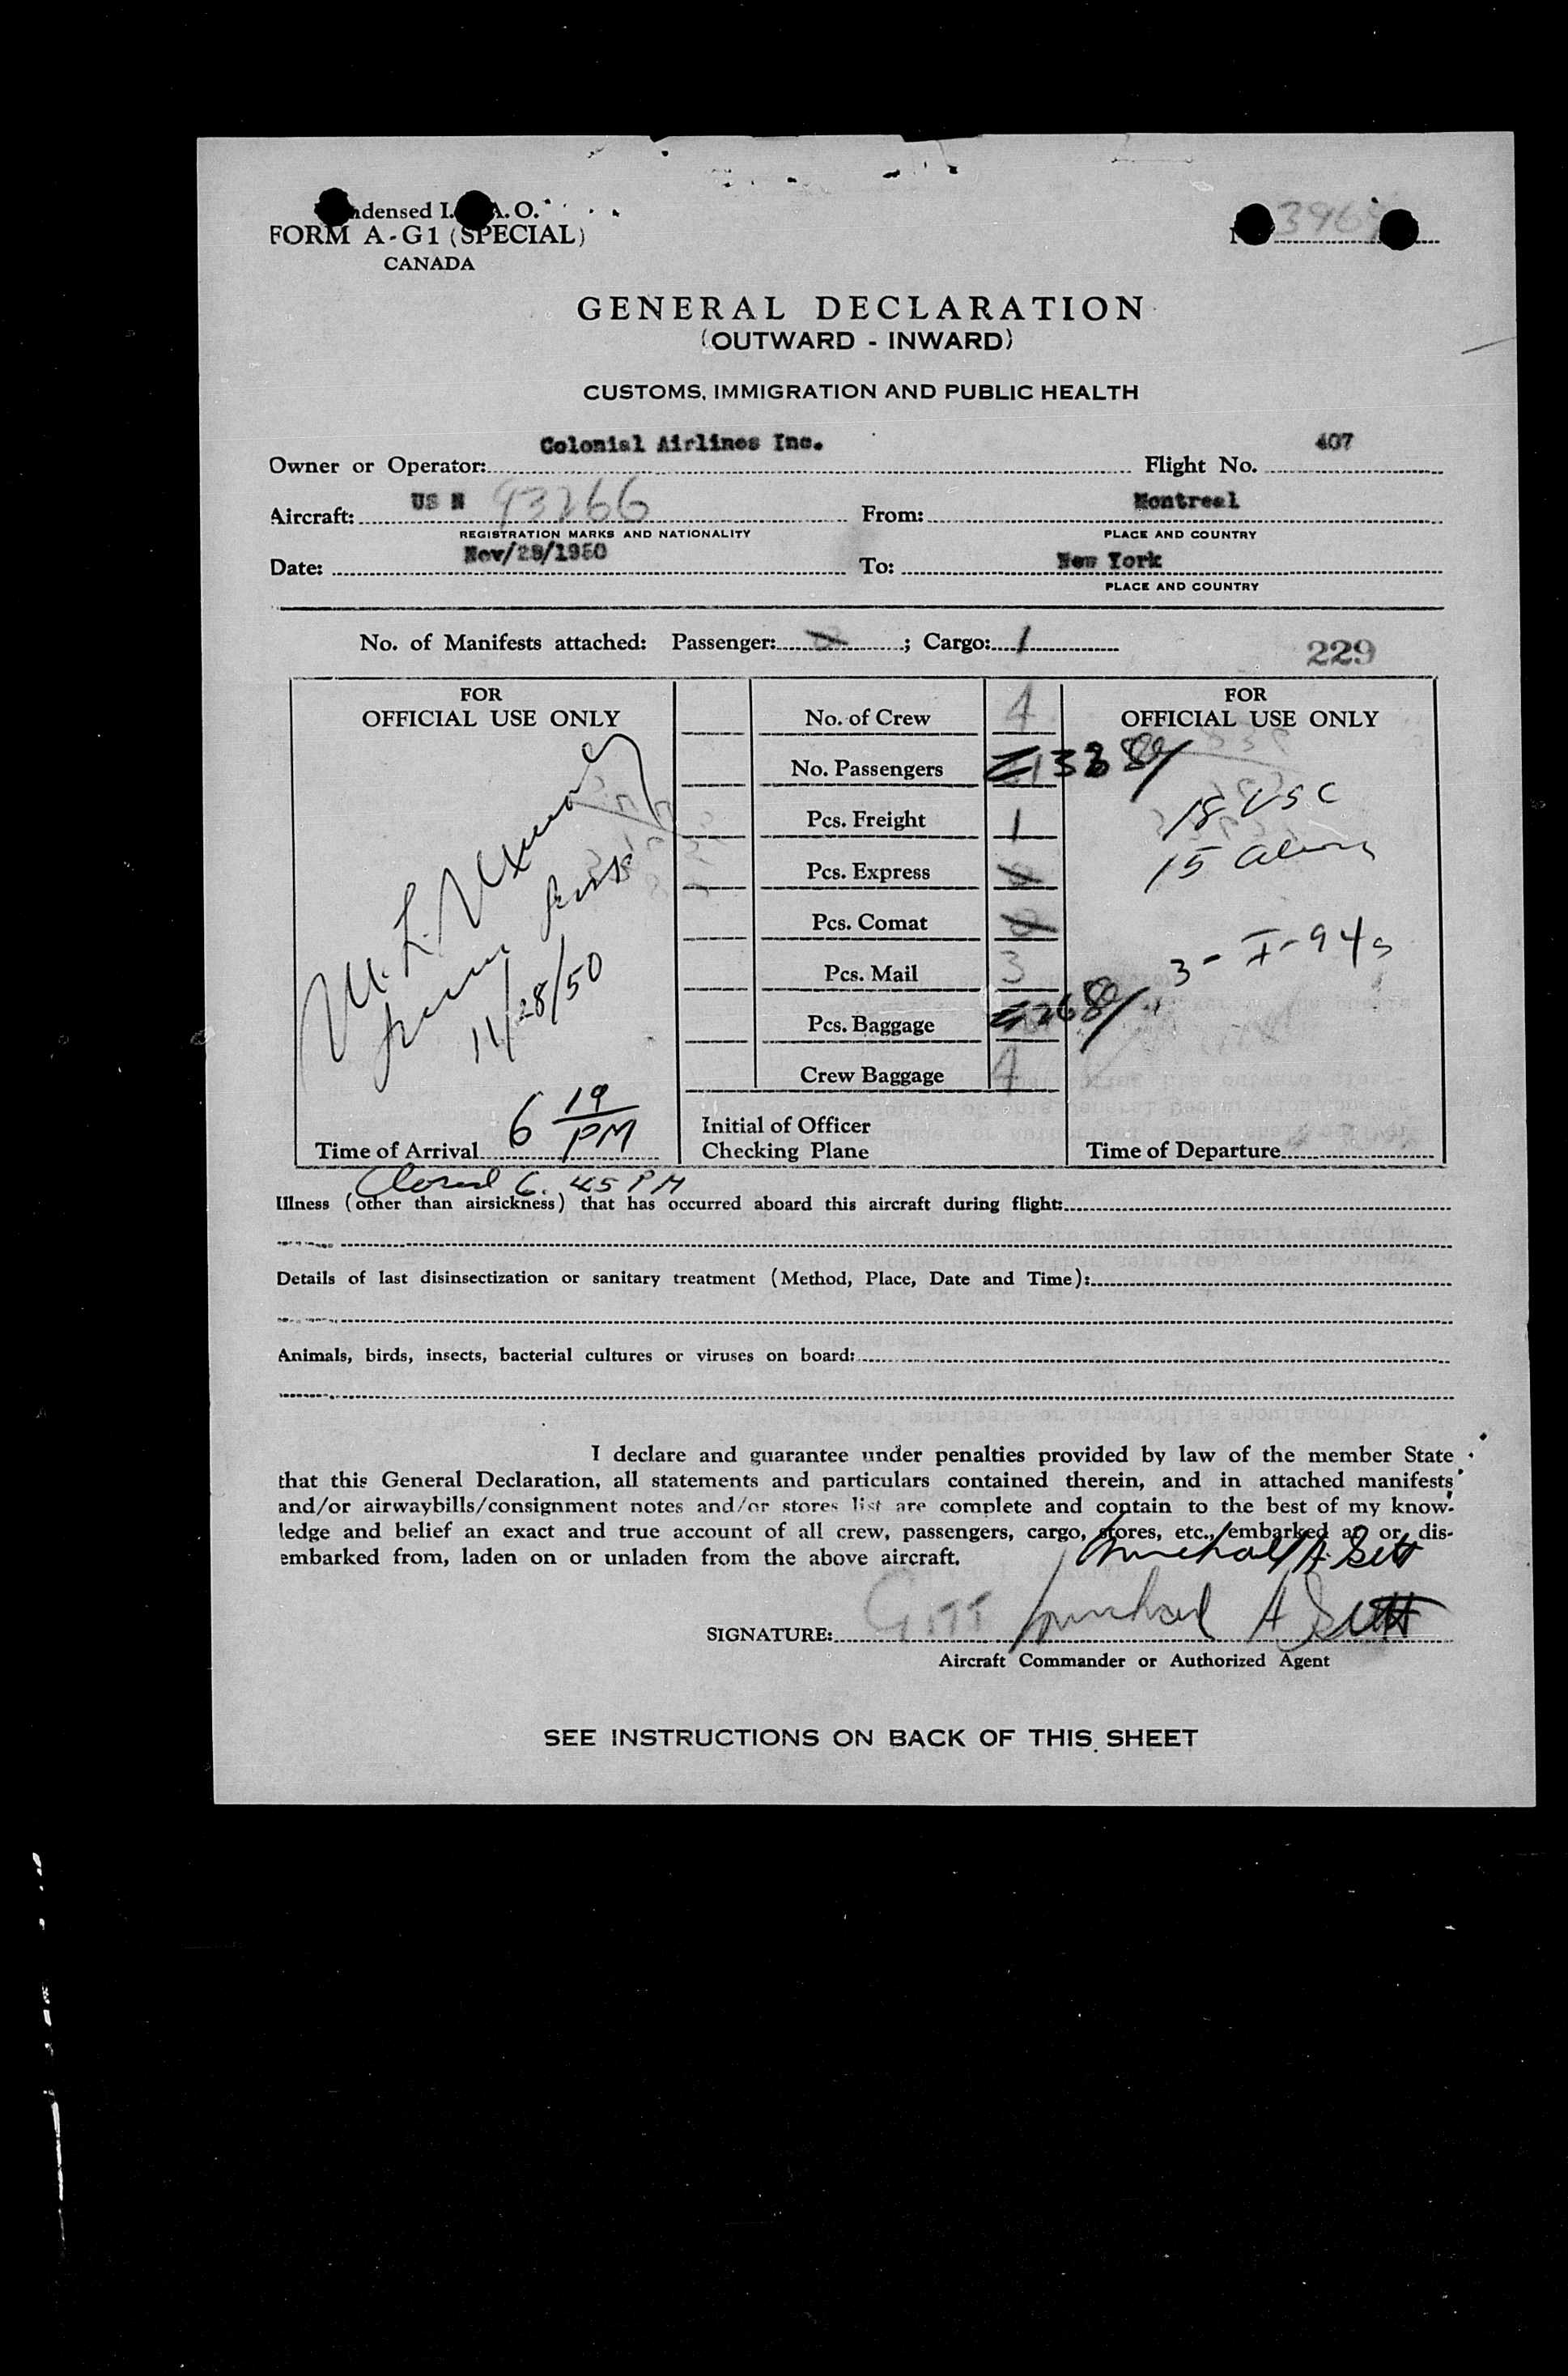 Condensed I.C.A.O.
FORM A-G1 (SPECIAL)
CANADA
GENERAL DECLARATION
(OUTWARD - INWARD)
CUSTOMS, IMMIGRATION AND PUBLIC HEALTH
Owner or Operator: Colonial Airlines Inc. Flight No. 407
Aircraft: US N 93266 From: Montreal
REGISTRATION MARKS AND NATIONALITY PLACE AND COUNTRY
Date: Nov/28/1950 To: New York
PLACE AND COUNTRY
No. of Manifests attached: Passenger: ; Cargo: 1
229
FOR
OFFICIAL USE ONLY
M. L.
11/28/50
Time of Arrival 6 19 PM
Closed 6.45 PM
No. of Crew 4
No. Passengers 33
Pcs. Freight 1
Pcs. Express
Pcs. Comat
Pcs. Mail 3
Pcs. Baggage 26
Crew Baggage 4
Initial of Officer
Checking Plane
FOR
OFFICIAL USE ONLY
18 USC
15 aliens
3 - I-94s
Time of Departure
Illness (other than airsickness) that has occurred aboard this aircraft during flight:
Details of last disinsectization or sanitary treatment (Method, Place, Date and Time):
Animals, birds, insects, bacterial cultures or viruses on board:
I declare and guarantee under penalties provided by law of the member State
that this General Declaration, all statements and particulars contained therein, and in attached manifests
and/or airwaybills/consignment notes and/or stores list are complete and contain to the best of my know-
ledge and belief an exact and true account of all crew, passengers, cargo, stores, etc., embarked at or dis-
embarked from, laden on or unladen from the above aircraft.
Michael A.
SIGNATURE: Gitt Michael A
Aircraft Commander or Authorized Agent
SEE INSTRUCTIONS ON BACK OF THIS SHEET